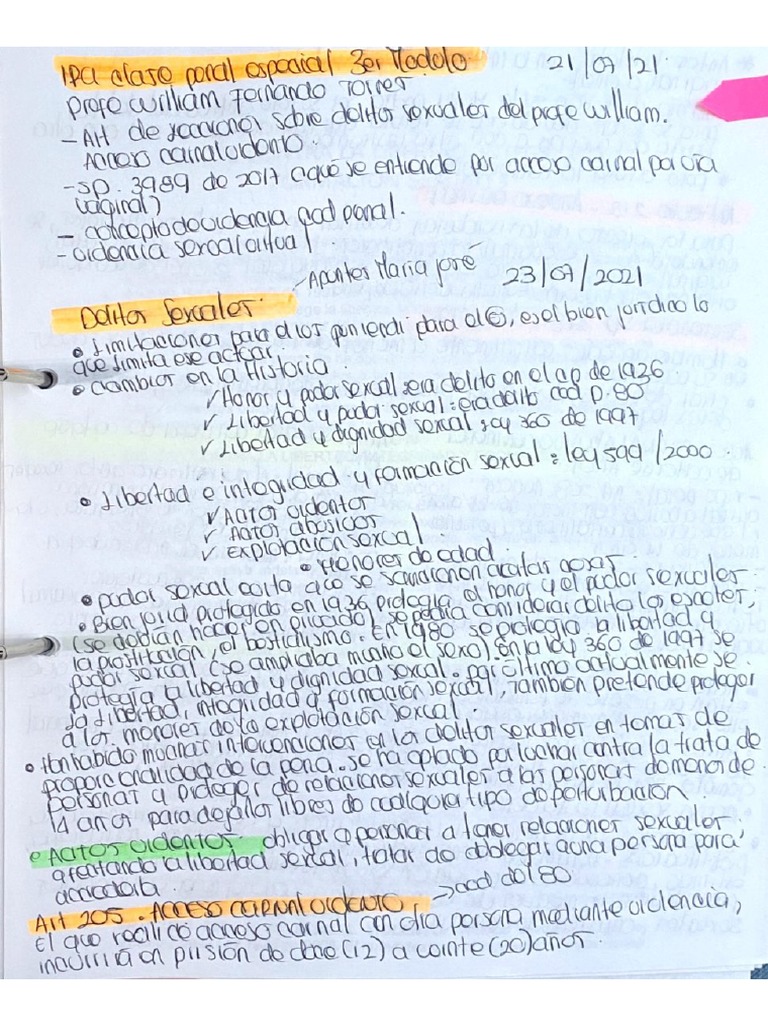 1ra clase penal especial 3er Modulo 21/07/21.
Profe William Fernando Torres.
- Art de secciones sobre delitos sexuales del profe William.
Acceso carnal violento.
- SP. 3989 de 2017 a que se entiende por acceso carnal por vía
vaginal)
- concepto de violencia cod penal.
- violencia sexual actual
- Apuntes Maria José 23/07/2021
Delitos Sexuales.
• Limitaciones para el ius puniendi. para el E, es el bien juridico lo
que limita ese actuar
• Cambios en la Historia
✓ Honor y pudor sexual era delito en el cp de 1936
✓ Libertad y pudor sexual = era delito cod p. 80
✓ Libertad y dignidad sexual Ley 360 de 1997
• Libertad e integridad y formación sexual = ley 599/2000.
✓ Actos violentos
✓ Actos abusivos
✓ Explotación sexual
• Menores de edad
• pudor sexual evita que se sancionen a ciertas
• Bien jurid protegido en 1936 protegía el honor y el pudor sexuales.
(se debían hacer en privado) se podría considerar delito los
la prostitución, el bestidismo. En 1980 se protegía a libertad y
pudor sexual (se ampliaba mucho el sexo). en la ley 360 de 1997 se
protegía la libertad y dignidad sexual. por último actualmente se
la libertad, integridad y formación sexual, También pretende proteger
a los menores de la explotación sexual.
• Han habido muchas intervenciones en los delitos sexuales en tomas de
proporcionalidad de la pena. se ha optado por luchar contra la trata de
personas y proteger de relaciones sexuales a las personas de menor de
14 años para dejarlos libres de cualquier tipo de perturbación
• Actos violentos obligar a personas a tener relaciones sexuales
afectando la libertad sexual, tratar de doblegar a una persona para
accederla → cod del 80
Art 205. Acceso carnal violento.
El que realice acceso carnal con otra persona mediante violencia,
incurrirá en prisión de doce (12) a veinte (20) años.